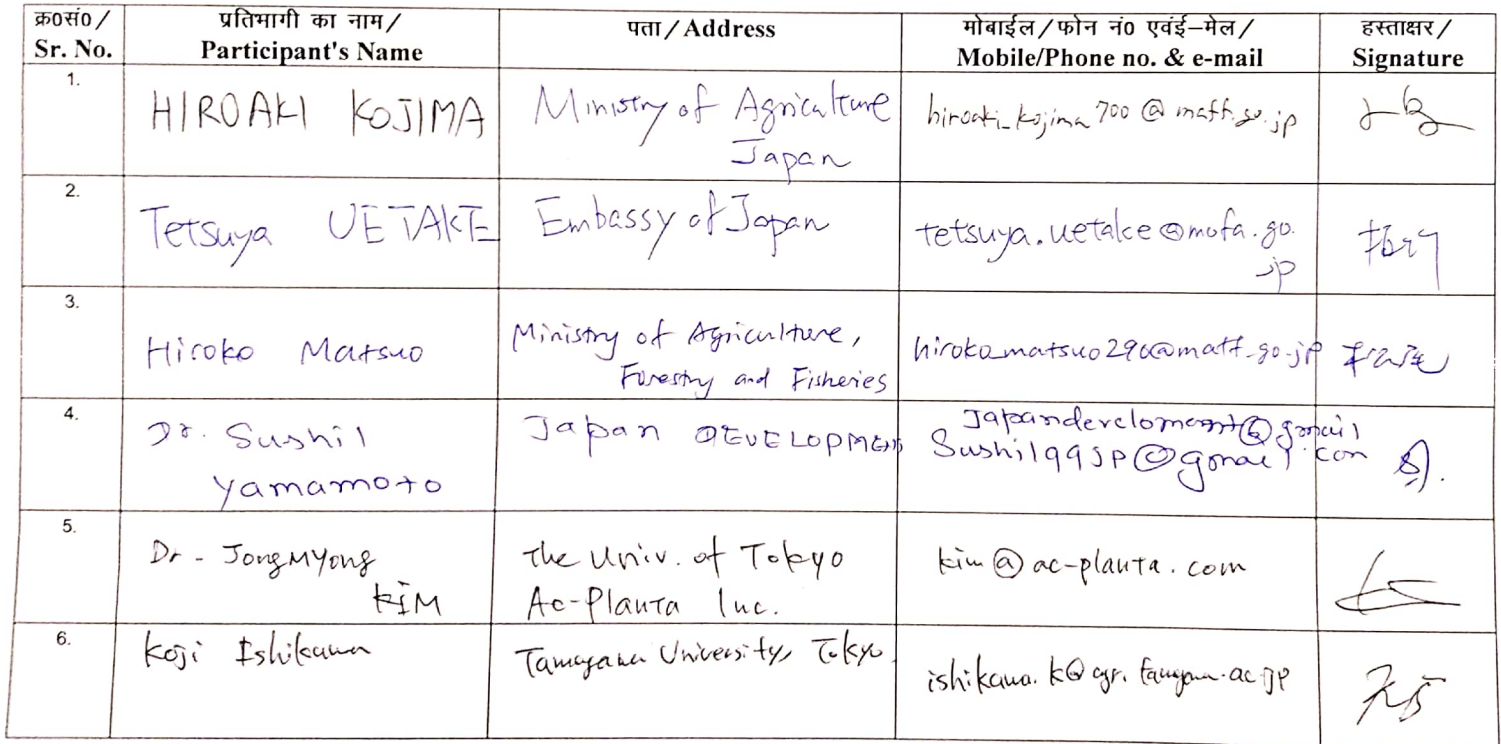 क्र०सं०/ Sr. No. प्रतिभागी का नाम/ Participant's Name पता/Address मोबाईल/फोन नं० एवंई–मेल/ Mobile/Phone no. & e-mail हस्ताक्षर/ Signature
1.
HIROAKI KOJIMA
Ministry of Agriculture
Japan
hiroaki_kojima700@maff.go.jp
2.
Tetsuya UETAKE
Embassy of Japan
tetsuya.uetake@mofa.go.
jp
3.
Hiroko Matsuo
Ministry of Agriculture,
Forestry and Fisheries
hiroko_matsuo290@maff.go.jp
4.
Dr. Sushil
Yamamoto
Japan DEVELOPMENT
Japanderclomemt@gmail
Sushil99JP@gmail.com
5.
Dr- JongMYong
KIM
The Univ. of Tokyo
Ac-Planta Inc.
kim@ac-planta.com
6.
Koji Ishikawa
Tamagawa University, Tokyo
ishikawa.k@agr.tamagawa.ac.jp